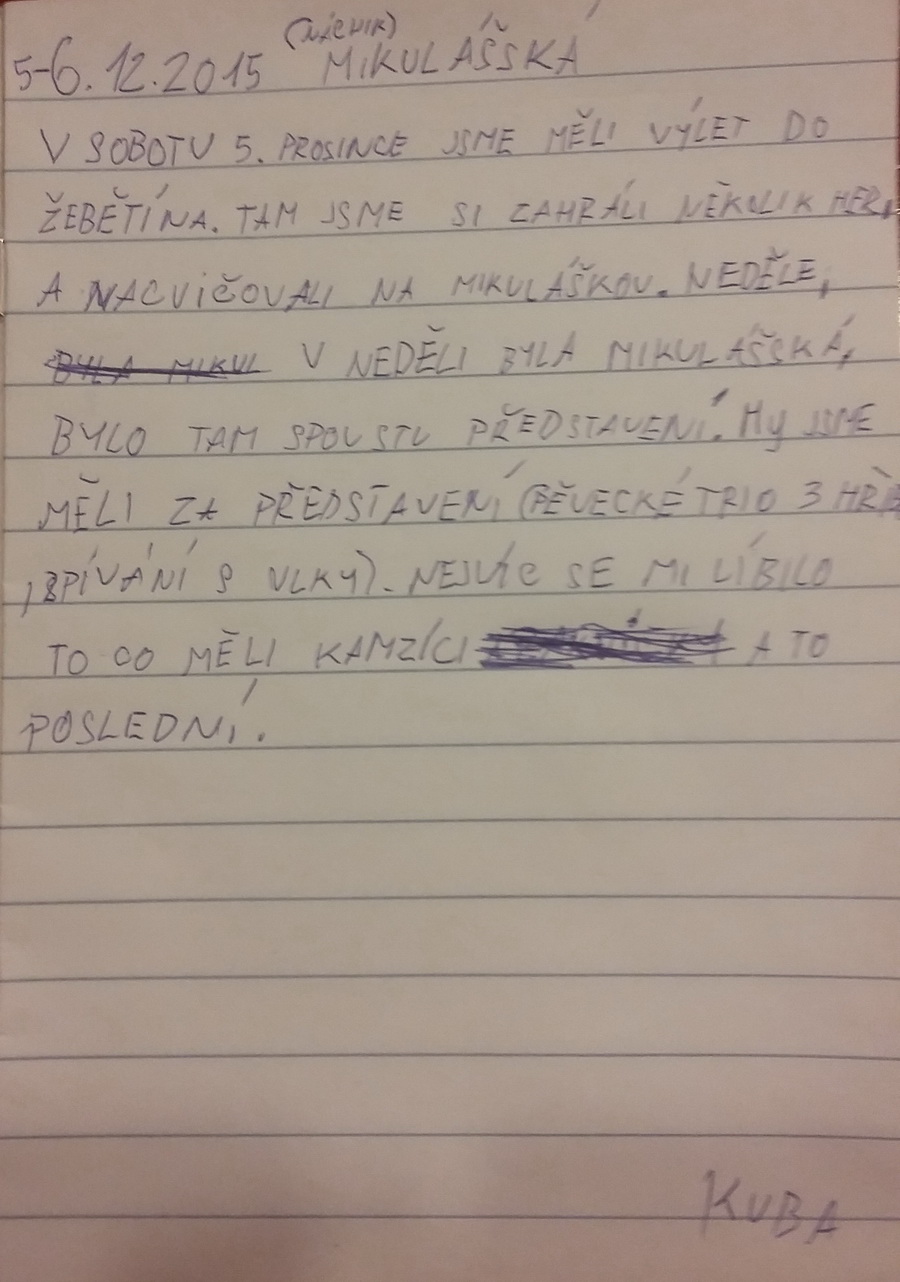 5-6.12.2015 MIKULÁŠSKÁ
V SOBOTU 5. PROSINCE JSME MĚLI VÝLET DO
ŽEBĚTÍNA. TAM JSME SI ZAHRÁLI NĚKOLIK HER,
A NACVIČOVALI NA MIKULÁŠKOU. NEDĚLE,
BYLA MIKUL V NEDĚLI BYLA MIKULÁŠSKÁ,
BYLO TAM SPOUSTU PŘEDSTAVENÍ. MY JSME
MĚLI ZA PŘEDSTAVENÍ (PĚVECKÉ TRIO 3 HŘ
, ZPÍVÁNÍ S VLKY). NEJVÍC SE MI LÍBILO
TO CO MĚLI KAMZÍCI A TO
POSLEDNÍ.
KUBA